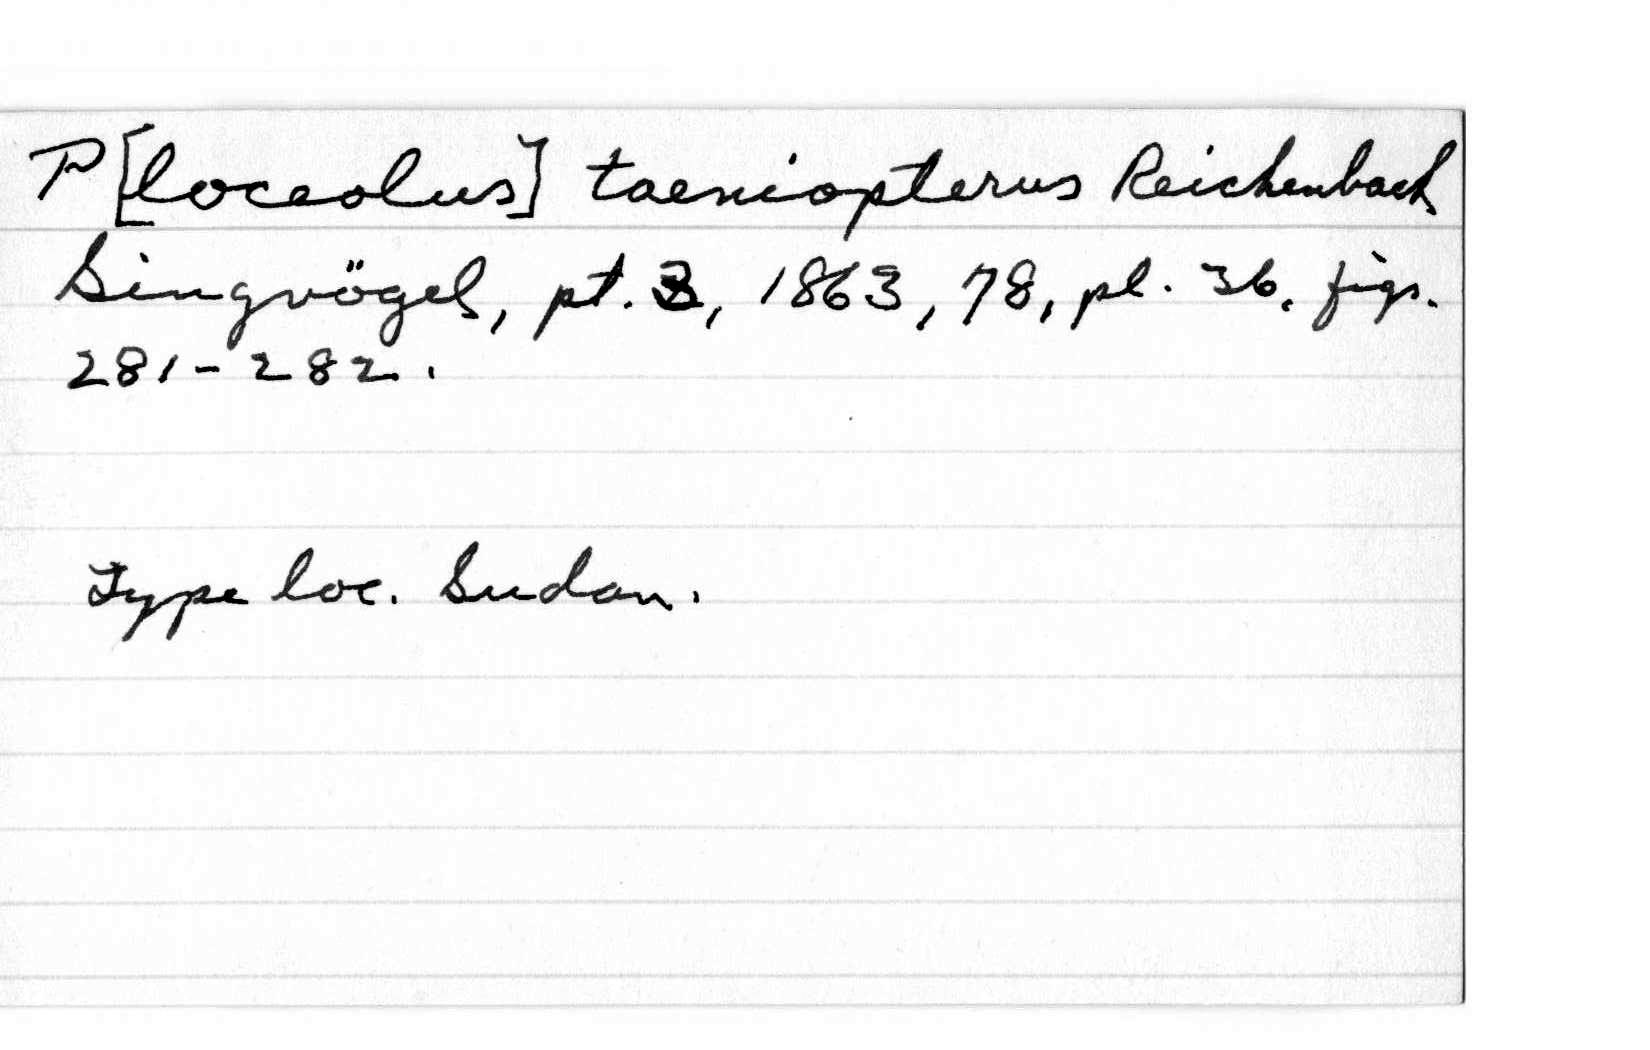 P[loceolus] taeniopterus Reichenbach
Singvögel, pt. 3, 1863, 78, pl. 36, figs.
281-282.
Type loc. Sudan.